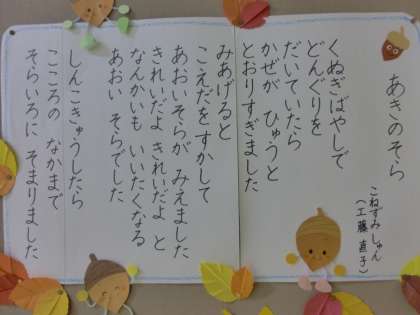 あきのそら
こねずみしゅん
(工藤直子)
くぬぎばやしで
どんぐりを
だいていたら
かぜが ひゅうと
とおりすぎました
みあげると
こえだをすかして
あおいそらが みえました
きれいだよ きれいだよ と
なんかいも いいたくなる
あおい そらでした
しんこきゅうしたら
こころの なかまで
そらいろに そまりました